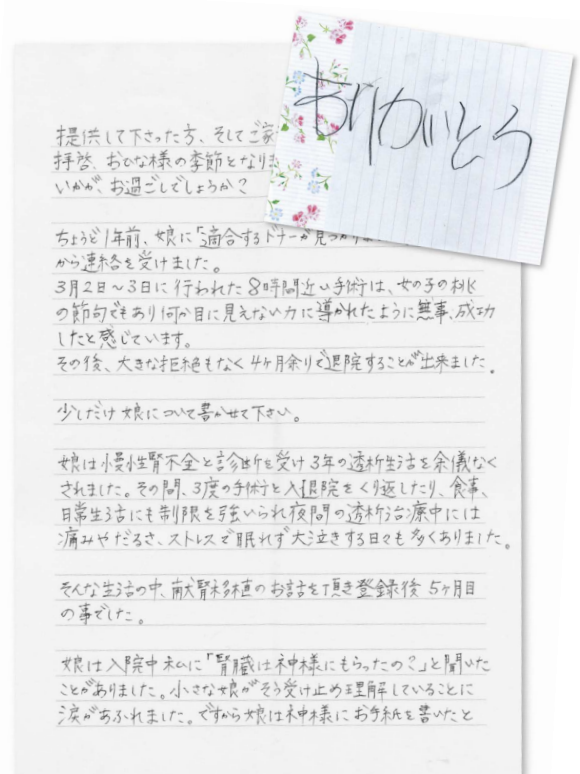 ありがとう
提供して下さった方、そしてご家
拝啓、おひな様の季節となりま
いかが、お過ごしでしょうか？
ちょうど1年前、娘に「適合するドナーが見つかりま
から連絡を受けました。
3月2日～3日に行われた8時間近い手術は、女の子の桃
の節句でもあり何か目に見えない力に導かれたように無事、成功
したと感じています。
その後、大きな拒絶もなく4ヶ月余りで退院することが出来ました。
少しだけ娘について書かせて下さい。
娘は慢性腎不全と診断を受け3年の透析生活を余儀なく
されました。その間、3度の手術と入退院をくり返したり、食事、
日常生活にも制限を強いられ夜間の透析治療中には
痛みやだるさ、ストレスで眠れず大泣きする日々も多くありました。
そんな生活の中、献腎移植のお話を頂き登録後5ヶ月目
の事でした。
娘は入院中私に「腎臓は神様にもらったの？」と聞いた
ことがありました。小さな娘がそう受け止め理解していることに
涙があふれました。ですから娘は神様にお手紙を書いたと